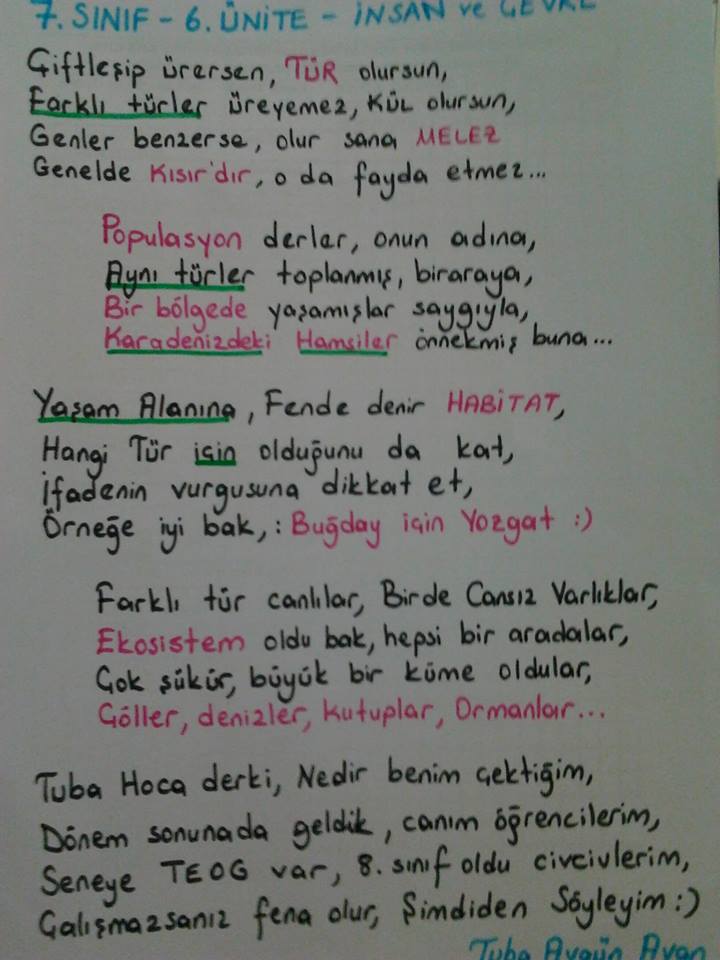 7. SINIF - 6. ÜNİTE - İNSAN ve ÇEVRE
Çiftleşip ürersen, TÜR olursun,
Farklı türler üreyemez, KÜL olursun,
Genler benzerse, olur sana MELEZ
Genelde Kısır'dır, o da fayda etmez...
Populasyon derler, onun adına,
Aynı türler toplanmış, biraraya,
Bir bölgede yaşamışlar saygıyla,
Karadenizdeki Hamsiler örnekmiş buna...
Yaşam Alanına, Fende denir HABİTAT,
Hangi Tür için olduğunu da kat,
İfadenin vurgusuna dikkat et,
Örneğe iyi bak,: Buğday için Yozgat :)
Farklı tür canlılar, Birde Cansız Varlıklar,
Ekosistem oldu bak, hepsi bir aradalar,
Çok şükür, büyük bir küme oldular,
Göller, denizler, Kutuplar, Ormanlar...
Tuba Hoca derki, Nedir benim çektiğim,
Dönem sonunada geldik, canım öğrencilerim,
Seneye TEOG var, 8. sınıf oldu civcivlerim,
Çalışmazsanız fena olur, Şimdiden Söyleyim :)
Tuba Aygün Avan